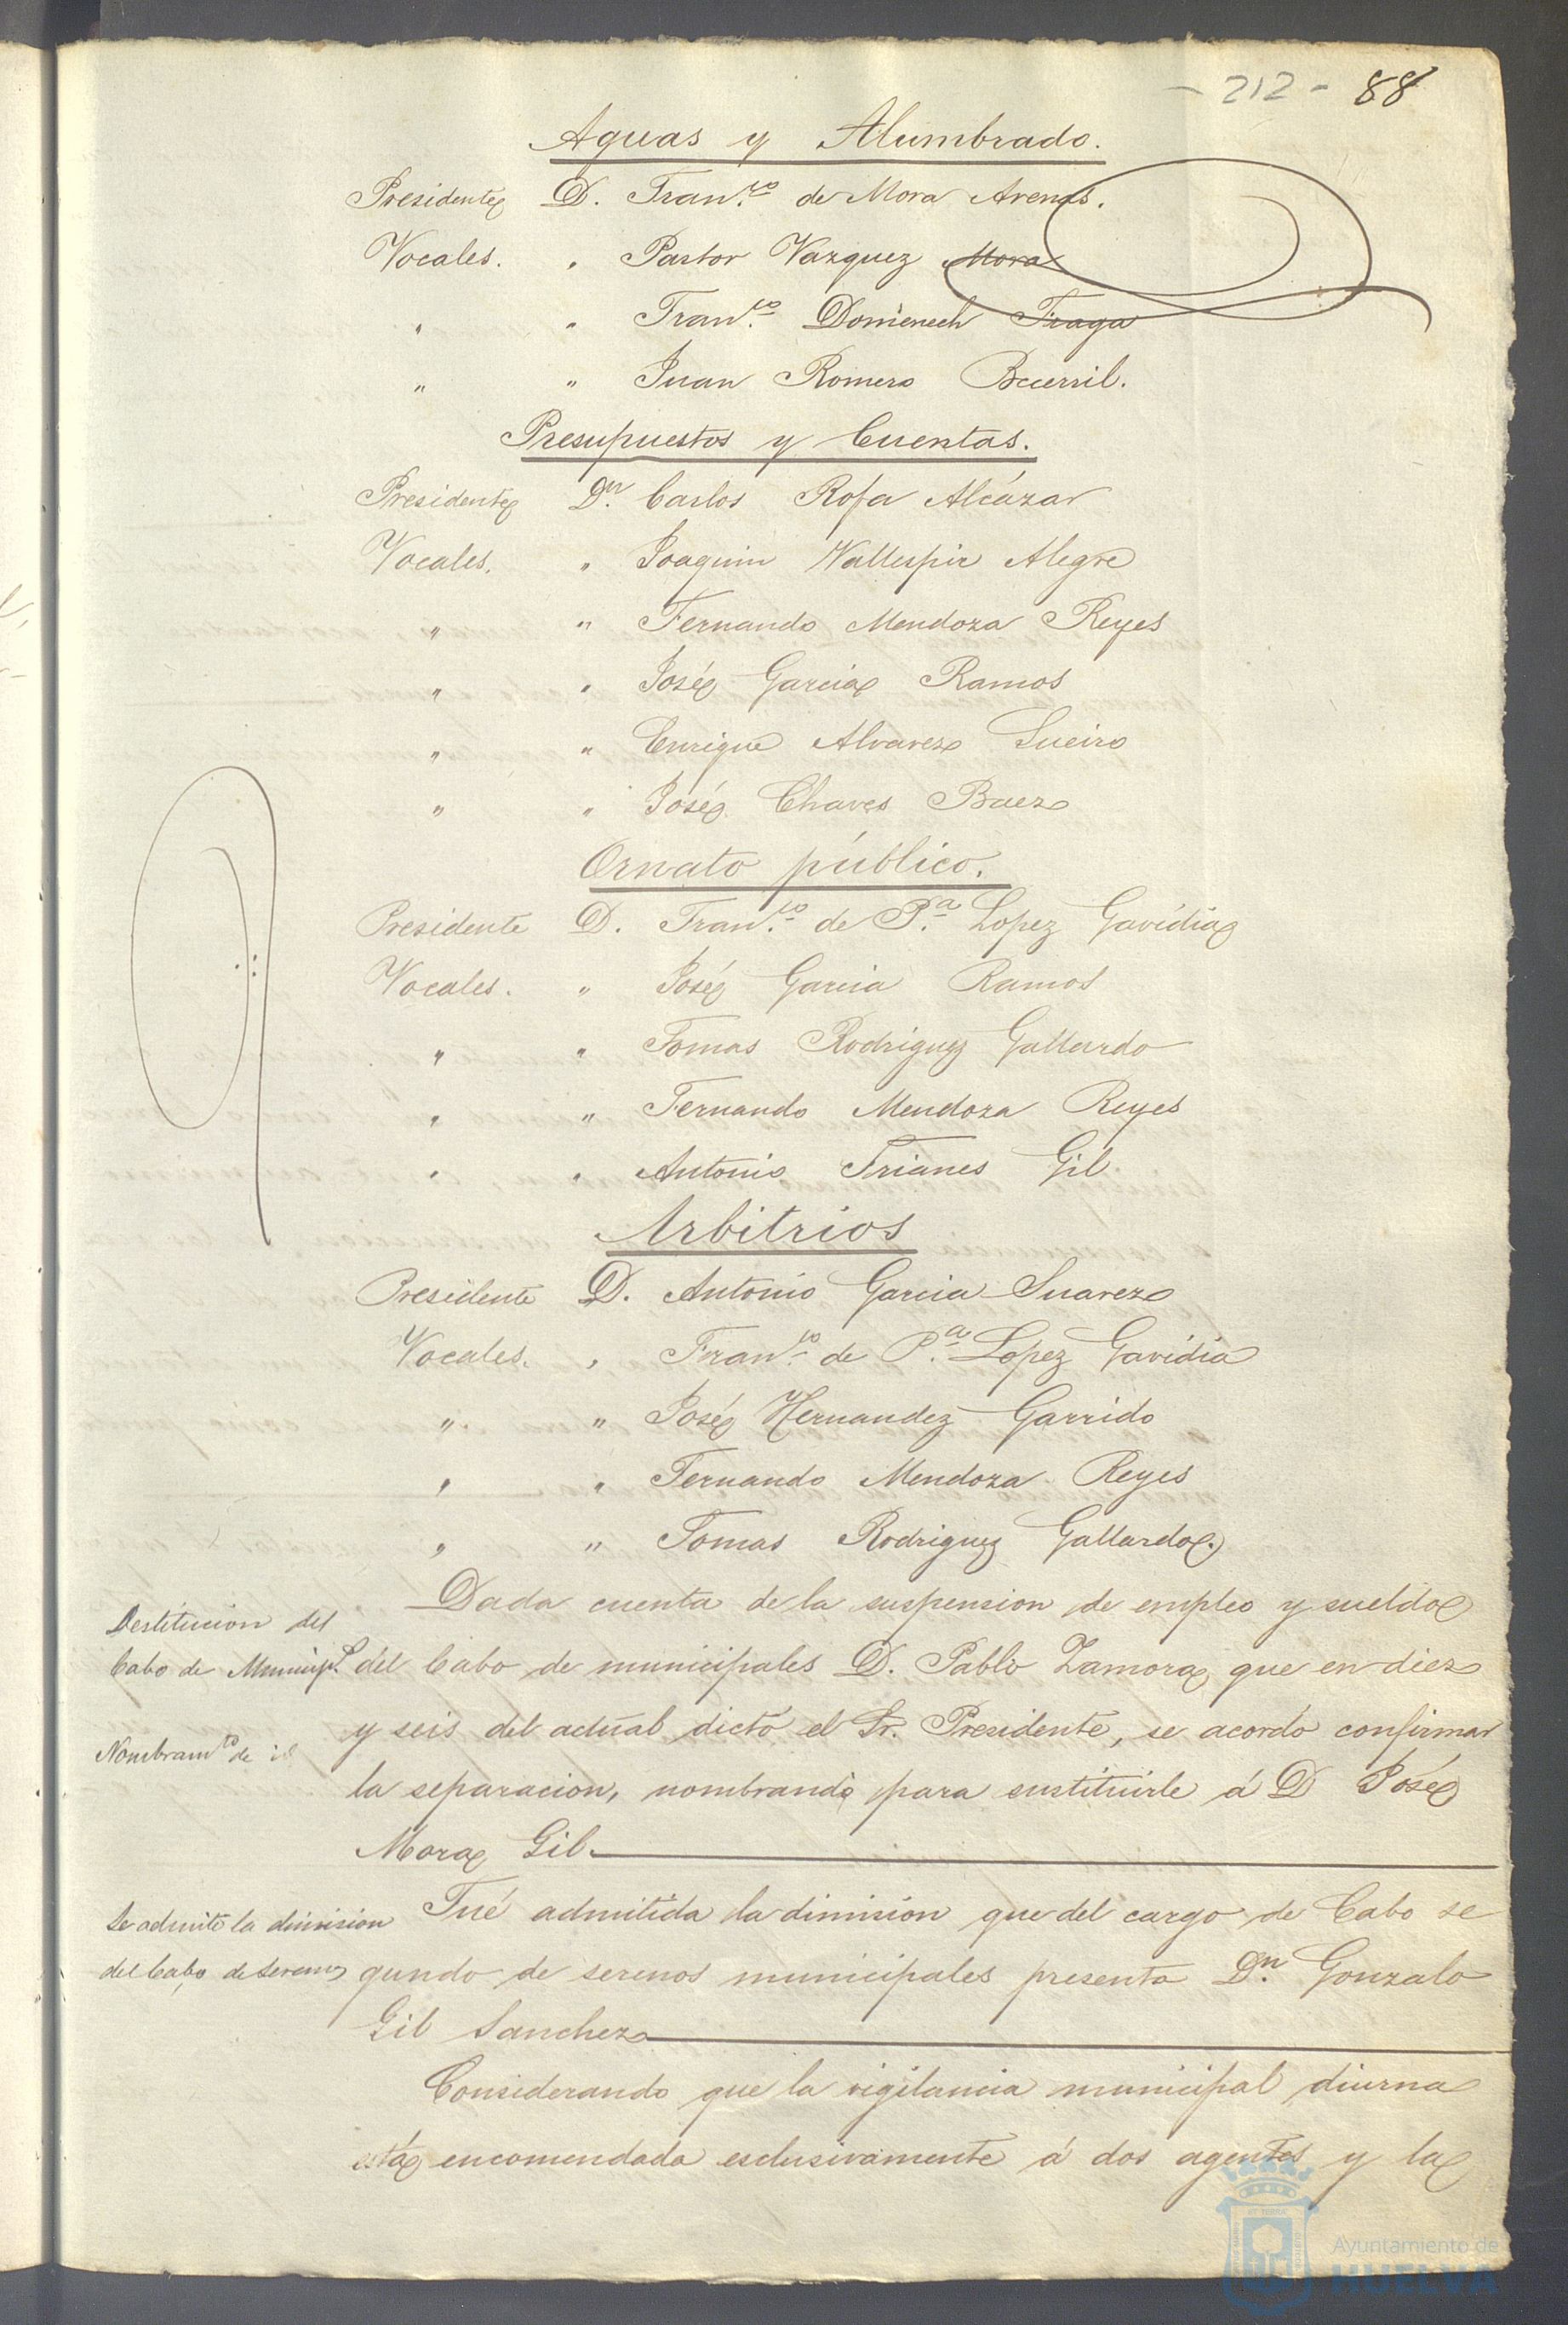 - 212 - 88
Aguas y Alumbrado.
Presidente D. Fran.co de Mora Arenas.
Vocales. " Pastor Vazquez Mora
" " Fran.co Domenech Fraga
" " Juan Romero Becerril.
Presupuestos y Cuentas.
Presidente Dn. Carlos Rofa Alcázar
Vocales. " Joaquin Vallespir Alegre
" " Fernando Mendoza Reyes
" " José Garcia Ramos
" " Enrique Alvarez Sueiro
" " José Chaves Baez
Ornato público.
Presidente D. Fran.co de P.a Lopez Gavidia
Vocales. " José Garcia Ramos
" " Tomas Rodriguez Gallardo
" " Fernando Mendoza Reyes
" " Antonio Trianes Gil
Arbitrios
Presidente D. Antonio Garcia Suarez
Vocales. " Fran.co de P.a Lopez Gavidia
" " José Hernandez Garrido
" " Fernando Mendoza Reyes
" " Tomas Rodriguez Gallardo.
Dada cuenta de la suspension de empleo y sueldo
Destitucion del
Cabo de Municip.l
del Cabo de municipales D. Pablo Zamora que en diez
y seis del actual dictó el Sr. Presidente, se acordó confirmar
Nombram.to de id
la separacion, nombrando para sustituirle á D José
Mora Gil.
Se admite la dimision
del Cabo de Serenos
Fué admitida la dimision que del cargo de Cabo se
gundo de serenos municipales presenta Dn. Gonzalo
Gil Sanchez
Considerando que la vigilancia municipal diurna
está encomendada esclusivamente á dos agentes y la
Ayuntamiento de
HUELVA